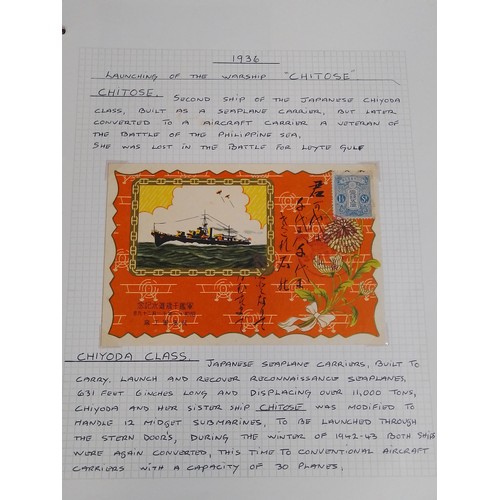 1936
LAUNCHING OF THE WARSHIP "CHITOSE"
CHITOSE. SECOND SHIP OF THE JAPANESE CHIYODA
CLASS, BUILT AS A SEAPLANE CARRIER, BUT LATER
CONVERTED TO A AIRCRAFT CARRIER A VETERAN OF
THE BATTLE OF THE PHILIPPINE SEA.
SHE WAS LOST IN THE BATTLE FOR LEYTE GULF
君が代は
千代に八千代に
さざれ石の
CHIYODA CLASS. JAPANESE SEAPLANE CARRIERS, BUILT TO
CARRY, LAUNCH AND RECOVER RECONNAISSANCE SEAPLANES.
631 FEET 6 INCHES LONG AND DISPLACING OVER 11,000 TONS,
CHIYODA AND HER SISTER SHIP CHITOSE WAS MODIFIED TO
HANDLE 12 MIDGET SUBMARINES, TO BE LAUNCHED THROUGH
THE STERN DOORS, DURING THE WINTER OF 1942-43 BOTH SHIPS
WERE AGAIN CONVERTED, THIS TIME TO CONVENTIONAL AIRCRAFT
CARRIERS WITH A CAPACITY OF 30 PLANES.